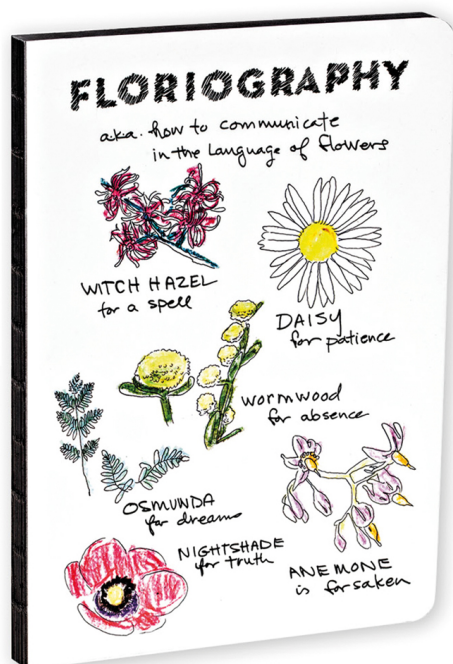 FLORIOGRAPHY
aka. how to communicate
in the language of flowers
WITCH HAZEL
for a spell
DAISY
for patience
wormwood
for absence
OSMUNDA
for dreams
NIGHTSHADE
for truth
ANEMONE
is forsaken